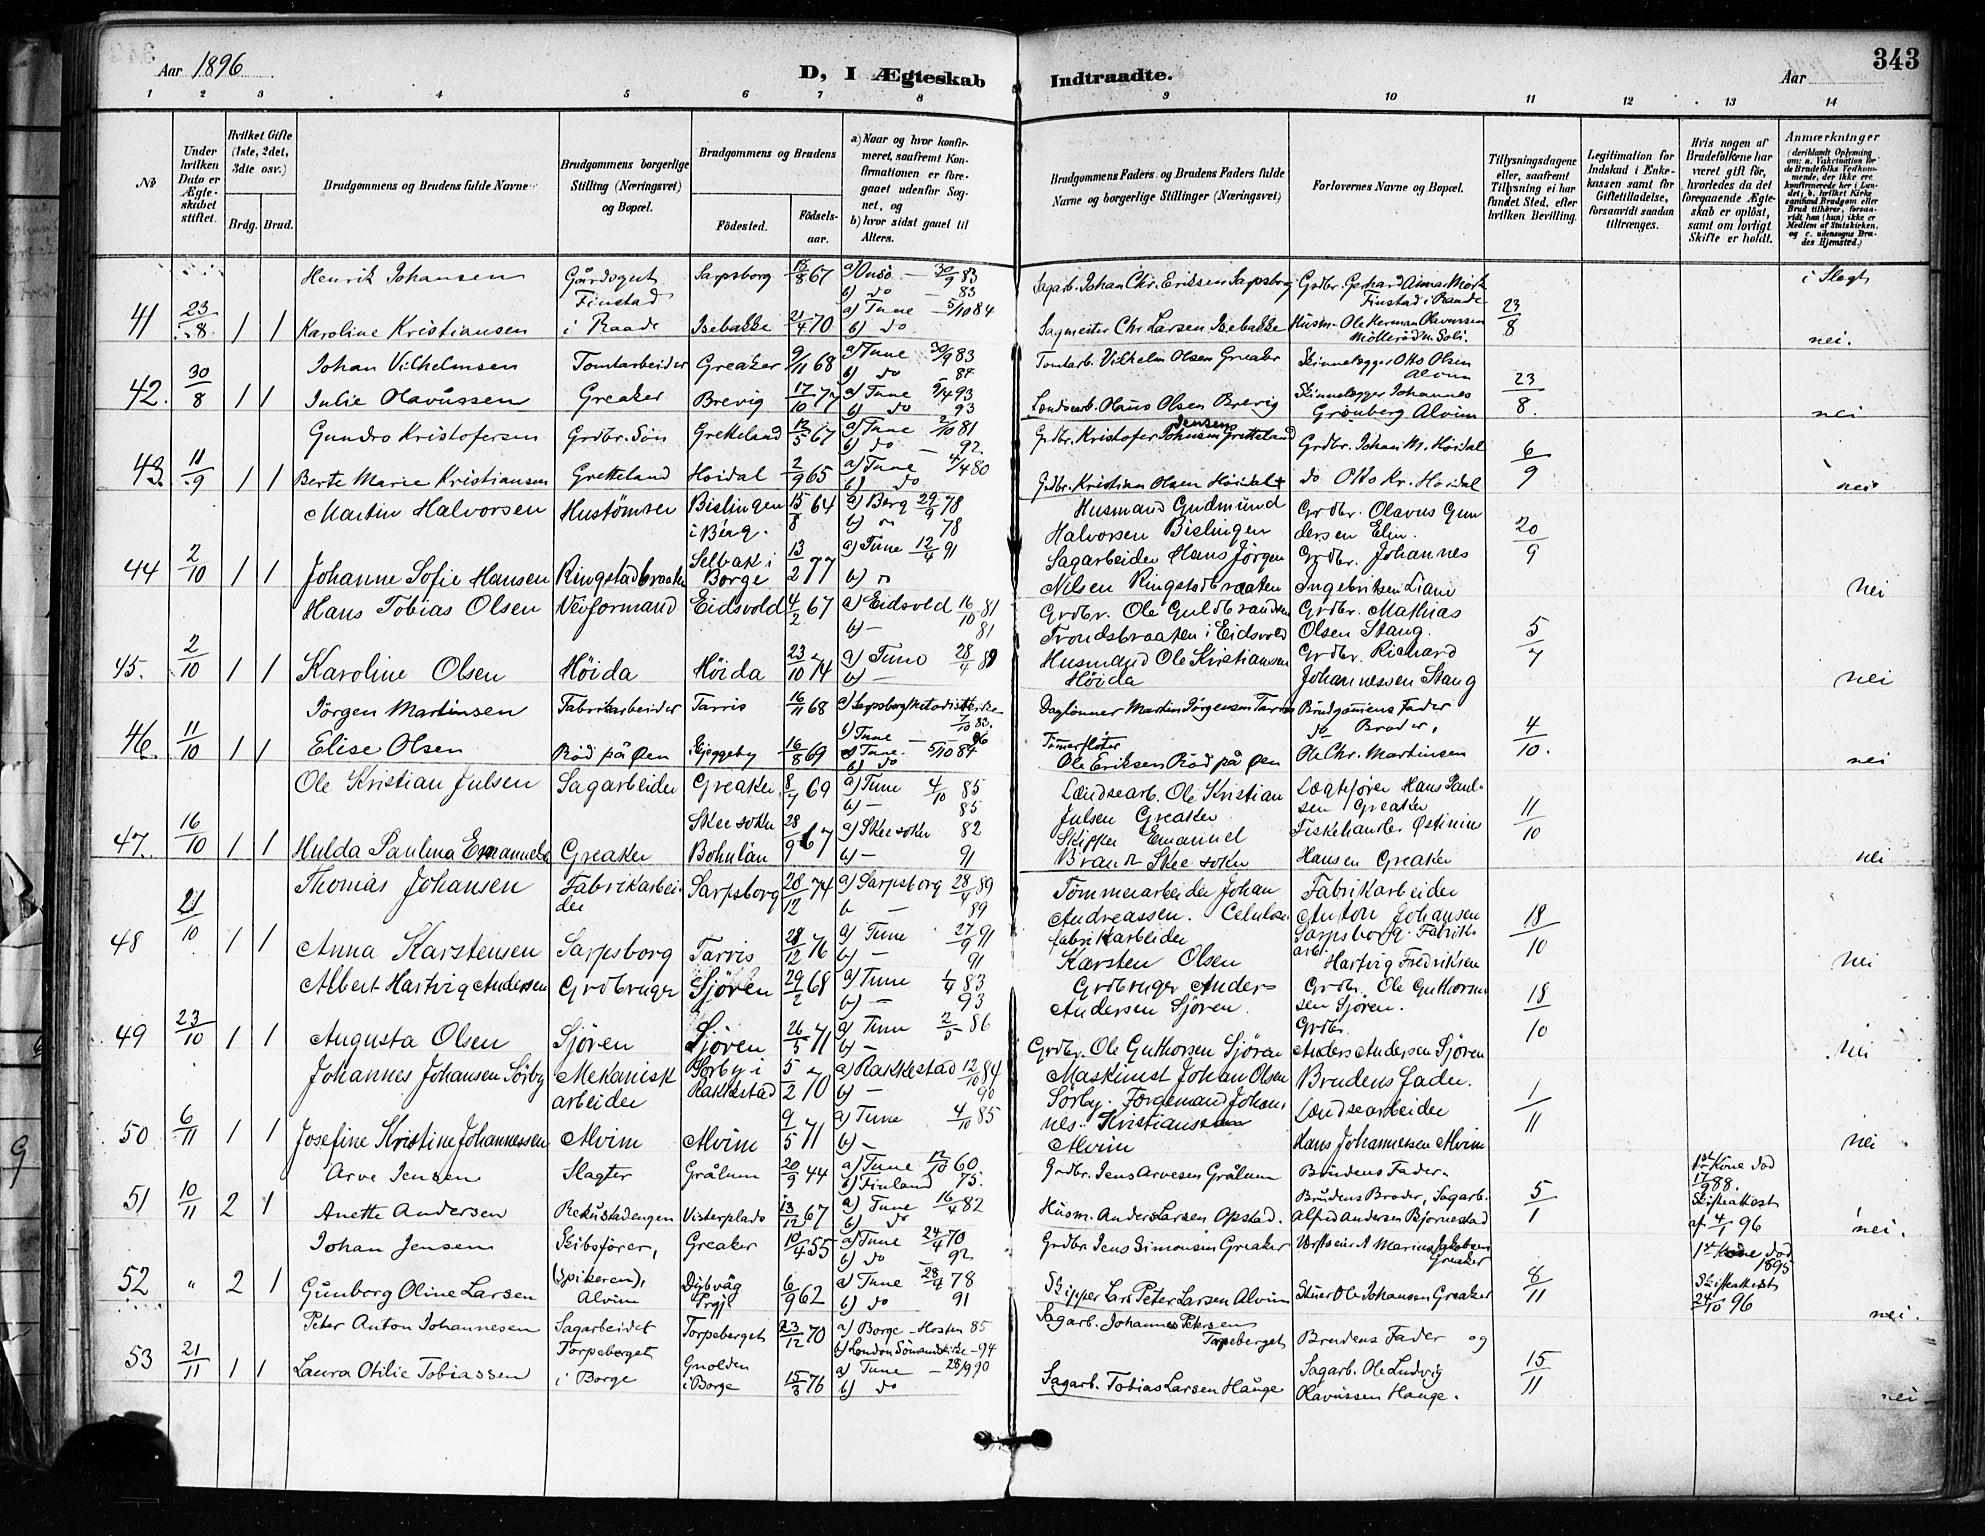 343
Aar 1896
D, I Ægteskab Indtraadte.
Aar
1 2 3 4 5 6 7 8 9 10 11 12 13 14
No
Under hvilken Dato er Ægteskabet stiftet.
Hvilket Gifte (1ste, 2det, 3die osv.)
Brdg. Brud.
Brudgommens og Brudens fulde Navne
Brudgommens borgerlige Stilling (Næringsvei) og Bopæl.
Brudgommens og Brudens
Fødested. Fødselsaar.
a) Naar og hvor konfirmeret, saafremt Konfirmationen er foregaaet udenfor Sognet, og
b) hvor sidst gaaet til Alters.
Brudgommens Faders og Brudens Faders fulde Navne og borgerlige Stillinger (Næringsvei)
Forlovernes Navne og Bopæl.
Tillysningsdagene eller, saafremt Tillysning ei har fundet Sted, efter hvilken Bevilling.
Legitimation for Indskud i Enkekassen samt for Giftetilladelse, forsaavidt saadan tiltrænges.
Hvis nogen af Brudefolkene har været gift før, hvorledes da det foregaaende Ægteskab er opløst, samt om lovligt Skifte er holdt.
Anmærkninger
(deriblandt Oplysning om: a. Vakcination for de Brudefolks Vedkommende, der ikke ere konfirmerede her i Landet; b. hvilket Kirkesamfund Brudgom eller Brud tilhører, forsaavidt han (hun) ikke er Medlem af Statskirken, og c. udensogns Brudes Hjemsted.)
Henrik Johansen Gårdsgut Sarpsborg 67 a) Onsø 30/9 83 Sagarb. Johan Chr. Eriksen Sarpsborg Grdbr. Gerhard i Slegt
Finstad b) do 83 Finstad i Raade
41 23/8 1 1 Karoline Kristiansen i Raade Isebakke 21/4 70 a) Tune 5/10 84 b) do Sagmester Chr. Larsen Isebakke Husm. Ole Herman Olavessen 23/8 nei.
Johan Vilhelmsen Tomtarbeider Greaker 9/11 68 a) Tune 30/9 83 b) do 84 Tomtarb. Vilhelm Olsen Greaker Skinnelægger Otto Olsen Alvim
42. 30/8 1 1 Julie Olavussen Greaker Brevig 17/10 77 a) Tune 9/4 93 b) do 93 Landsarb. Hans Olsen Brevig Skinnelægger Johannes Grønberg Alvim 23/8. nei
Gundro Kristofersen Grdbr. Søn Gretteland 13/5 67 a) Tune 2/10 81 b) do 92 Grdbr. Kristofer Jensen Gretteland Grdbr. Johan M. Høidal
43. 11/9 1 1 Berte Marie Kristiansen Gretteland Høidal 2/9 65 a) Tune 4/4 80 b) do Grdbr. Kristian Olsen Høidal do Otto Kr. Høidal 6/9 nei
Martin Halvorsen Hustømrer Bislingen i Berg. 15/8 64 a) Berg 29/9 78 b) 78 Husmand Gudmund Halvorsen Bislingen Grdbr. Olavus Gundersen Elin.
44 2/10 1 1 Johanne Sofie Hansen Ringstadbraaten Selbak i Borge 13/2 77 a) Tune 12/4 91 b) Sagarbeider Hans Jörgen Nilsen Ringstadbraaten Grdbr. Johannes Ingebritsen Liane 20/9 nei
Hans Tobias Olsen Veiformand Eidsvold 4/2 67 a) Eidsvold 16/10 81 b) — 81 Grdbr. Ole Guldbrandsen Trondsbraaten i Eidsvold Grdbr. Mathias Olsen Stang.
45. 2/10 1 1 Karoline Olsen Höida Höida 23/10 74 a) Tune 28/4 89 b) — Husmand Ole Kristiansen Höida Grdbr. Richard Johannessen Stang 5/7 nei
Jörgen Martinsen Fabrikarbeider Tarris 16/11 68 a) Sarpsborg Metodistkirke 7/10 83. b) Tune 96 Daglønner Martin Jørgensen Tarris Brudgommens Fader
46. 11/10 1 1 Elise Olsen Rød på Øen Skjeggeby 16/8 69 a) Tune. 5/10 84 b) do Tømerfløter Ole Eriksen Rød på Øen do Broder, Ole Chr. Martinsen 4/10. nei
Ole Kristian Julsen Sagarbeider Greaker 8/7 69 a) Tune 4/10 85 b) — 85 Landsearb. Ole Kristian Julsen Greaker Lægtefører Hans Paulsen Greaker
47. 16/10 1 1 Hulda Paulina Emanuels Greaker Skee sokn Bohulän 28/9 67 a) Skee sokn 82 b) — 91 Skipper Emanuel Brandt Skee sokn Fiskehandler Østinius Hansen Greaker 11/10 nei
Thomas Johansen Fabrikarbeider Sarpsborg 28/12 74 a) Sarpsborg 28/4 89 b — 89 Tømmerarbeider Johan Andreassen. Fabrikarbeider Anton Johansen Sarpsborg.
48 21/10 1 1 Anna Karstensen Sarpsborg Tarris 28/12 76 a) Tune 27/9 91 b) — 91 Celulosefabrikkarbeider Karsten Olsen Fabrikarb. Hartvig Fredriksen 18/10 nei
Albert Hartvig Andersen Grdbruger Sjøren 29/2 68 a) Tune 1/4 83 b) — 93 Grdbruger Anders Andersen Sjøren Grdbr. Ole Guthormsen Sjøren.
49 23/10 1 1 Augusta Olsen Sjøren Sjøren 26/5 71 a) Tune 2/5 86 b) — Grdbr. Ole Guthorsen Sjøren Grdbr. Anders Andersen Sjøren 18/10 nei
Johannes Johansen Sörby Mekanisk arbeider Sörby i Rakkestad 5/2 70 a) Rakkestad 12/10 84 b) — 90 Maskinist Johan Olsen Sörby. Brudens Fader.
50 6/11 1 1 Josefine Kristine Johannessen Alvim Alvim 9/5 71 a) Tune 4/10 85 b) — Forgemand Johannes Kristianssen Alvim Landsearbeider Hans Johannessen Alvim 1/11 nei
Arve Jensen Slagter Grålum 20/9 44 a) Tune 12/10 60 b) Finland 75. Grdbr. Jens Arvesen Grålum Brudens Fader. 1st Kone død 17/9 88.
51 10/11 2 1 Anette Andersen Rekustadengen Visterplads 13/12 67 a) Tune 16/4 82 b) do Husm. Anders Larsen Opstad. Brudens Broder, Sagarb. Alfred Andersen Bjørnestad 5/1 Skifteattest af 4/7 96 nei.
Johan Jensen Skibsfører, Greaker 10/4 55 a) Tune 24/4 70 b) do 92 Grdbr. Jens Simonsen Greaker Værftseier A Marius Jakobsen Greaker 1st Kone død 1895
52 " 2 1 Gunborg Oline Larsen (Spikeren), Alvim Dybvåg 6/9 62 a) Tune 28/4 78 b) do 91 Skipper Lars Peter Larsen Alvim Stuer Ole Johansen Greaker 8/11 Skifteattest 24/10 96 nei.
Peter Anton Johannesen Sagarbeider Torpeberget 23/12 70 a) Borge Høsten 85 b) London Sømandskirke 94 Sagarb. Johannes Petersen Torpeberget Brudens Fader og
53 21/11 1 1 Laura Otilie Tobiassen Torpeberget i Borge Gnolden i Borge 15/3 76 a) Tune 28/9 90 b) do Sagarb. Tobias Larsen Hauge Sagarb. Ole Ludvig Olavussen Hauge. 15/11 nei